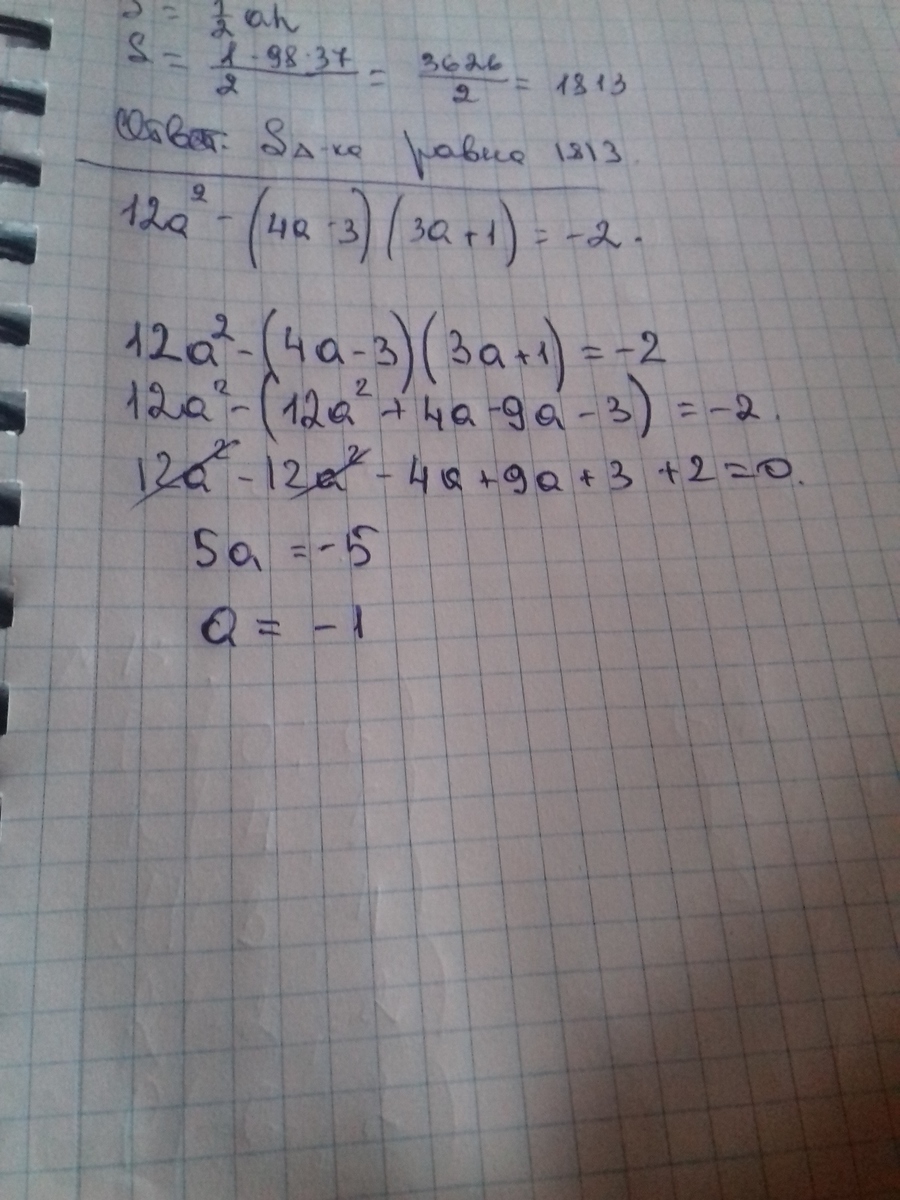 S = 1/2 ah
S = 1·98·37/2 = 3626/2 = 1813
Ответ: S Δ-ка равна 1813.
12a² - (4a - 3)(3a + 1) = -2.
12a² - (4a - 3)(3a + 1) = -2
12a² - (12a² + 4a - 9a - 3) = -2.
12a² - 12a² - 4a + 9a + 3 + 2 = 0.
5a = -5
a = -1